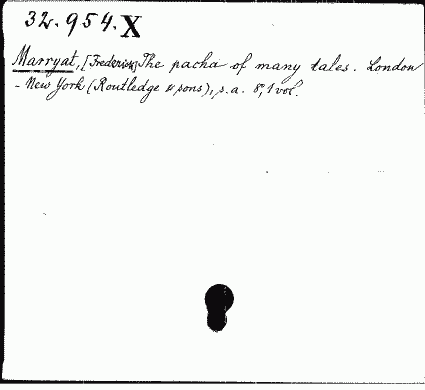 32.954.X
Marryat, [Frederick] The pacha of many tales. London
- New York (Routledge & sons), s.a. 8°, 1 vol.